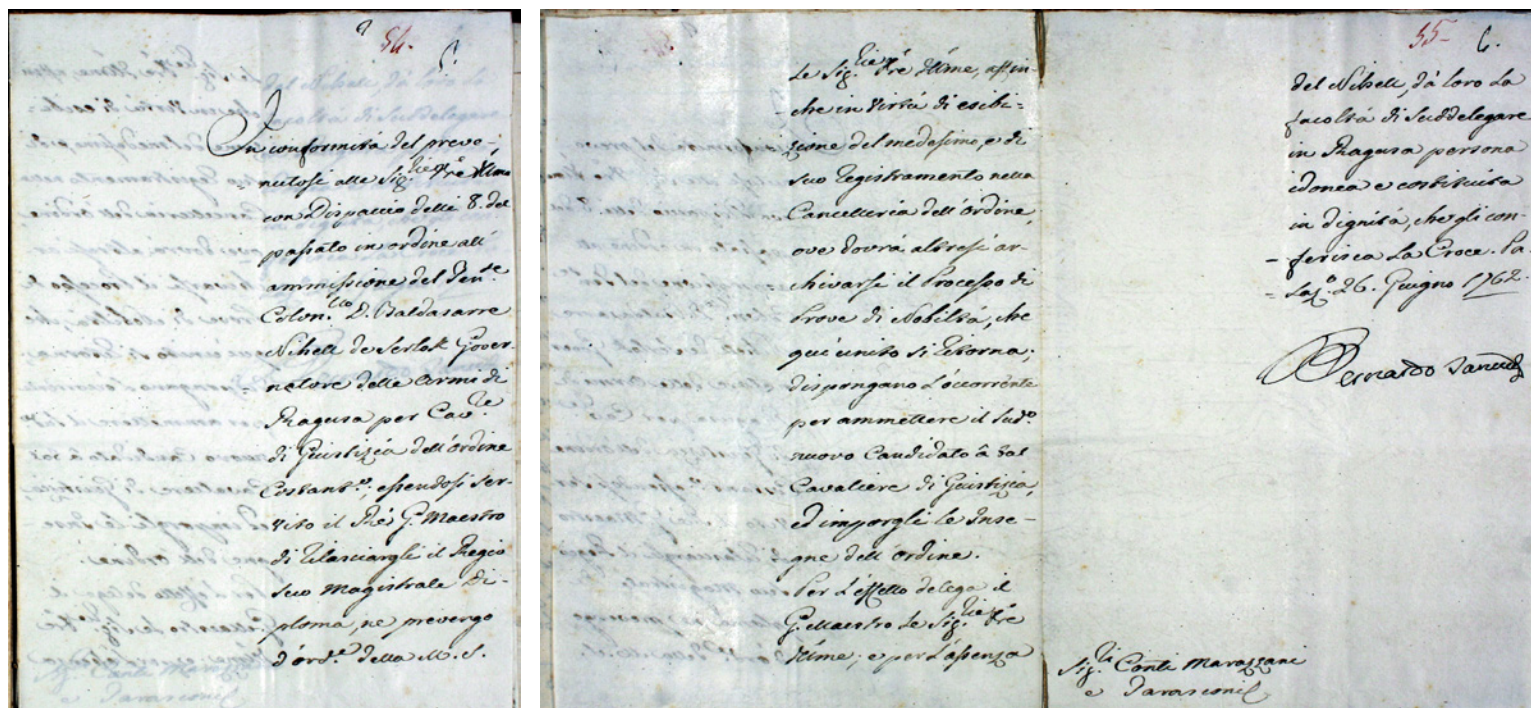 54.
In conformità del preve-
nutosi alle Sig.rie V̅r̅e̅ Ill̅m̅e̅
con Dispaccio delli 8. del
passato in ordine all'
ammissione del Ten.te
Colon.llo D. Baldasarre
Nihell de Serlost Gover-
natore delle Armi di
Ragusa per Cav.re
di Giustizia dell'ordine
Costant.o, essendosi ser-
vito il Rè G. Maestro
di rilasciargli il Regio
suo Magistrale Di-
ploma, ne prevengo
d'ord.e della M. S.
le Sig.rie V̅r̅e̅ Ill̅m̅e̅, affin-
che in virtù di esibi-
zione del medesimo, e di
suo registramento nella
Cancelleria dell'ordine,
ove dovrà altresì ar-
chivarsi il Processo di
Prove di Nobiltà, che
quì unito si ritorna;
dispongano l'occorrente
per ammettere il sud.o
nuovo Candidato à tal
Cavaliere di Giustizia,
ed imporgli le Inse-
gne dell'ordine.
Per l'effetto delega il
G. Maestro le Sig.rie V̅r̅e̅
Ill̅m̅e̅; e per l'assenza
55. 6.
del Nihell, dà loro la
facoltà di suddelegare
in Ragusa persona
idonea e costituita
in dignità, che gli con-
ferisca la Croce. Pa-
laz.o 26. Giugno 1762.
Bernardo Tanucci
Sig.ri Conti Marazzani
e Tarasconi